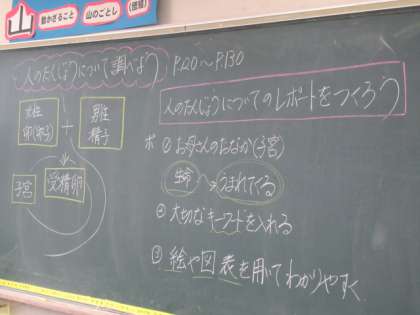 山
動かざること
山のごとし
人のたんじょうについて調べよう
P.120～P.130
女性
卵(卵子)
+
男性
精子
子宮
受精卵
人のたんじょうについてのレポートをつくろう
ポ ① お母さんのおなか(子宮)
生命 → うまれてくる
② 大切なキーワードを入れる
③ 絵や図表を用いてわかりやすく